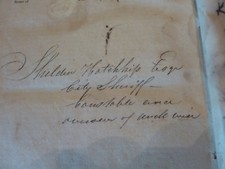 Shelden Hotchkiss Esqr
City Sheriff –
Constable and
overseer of work